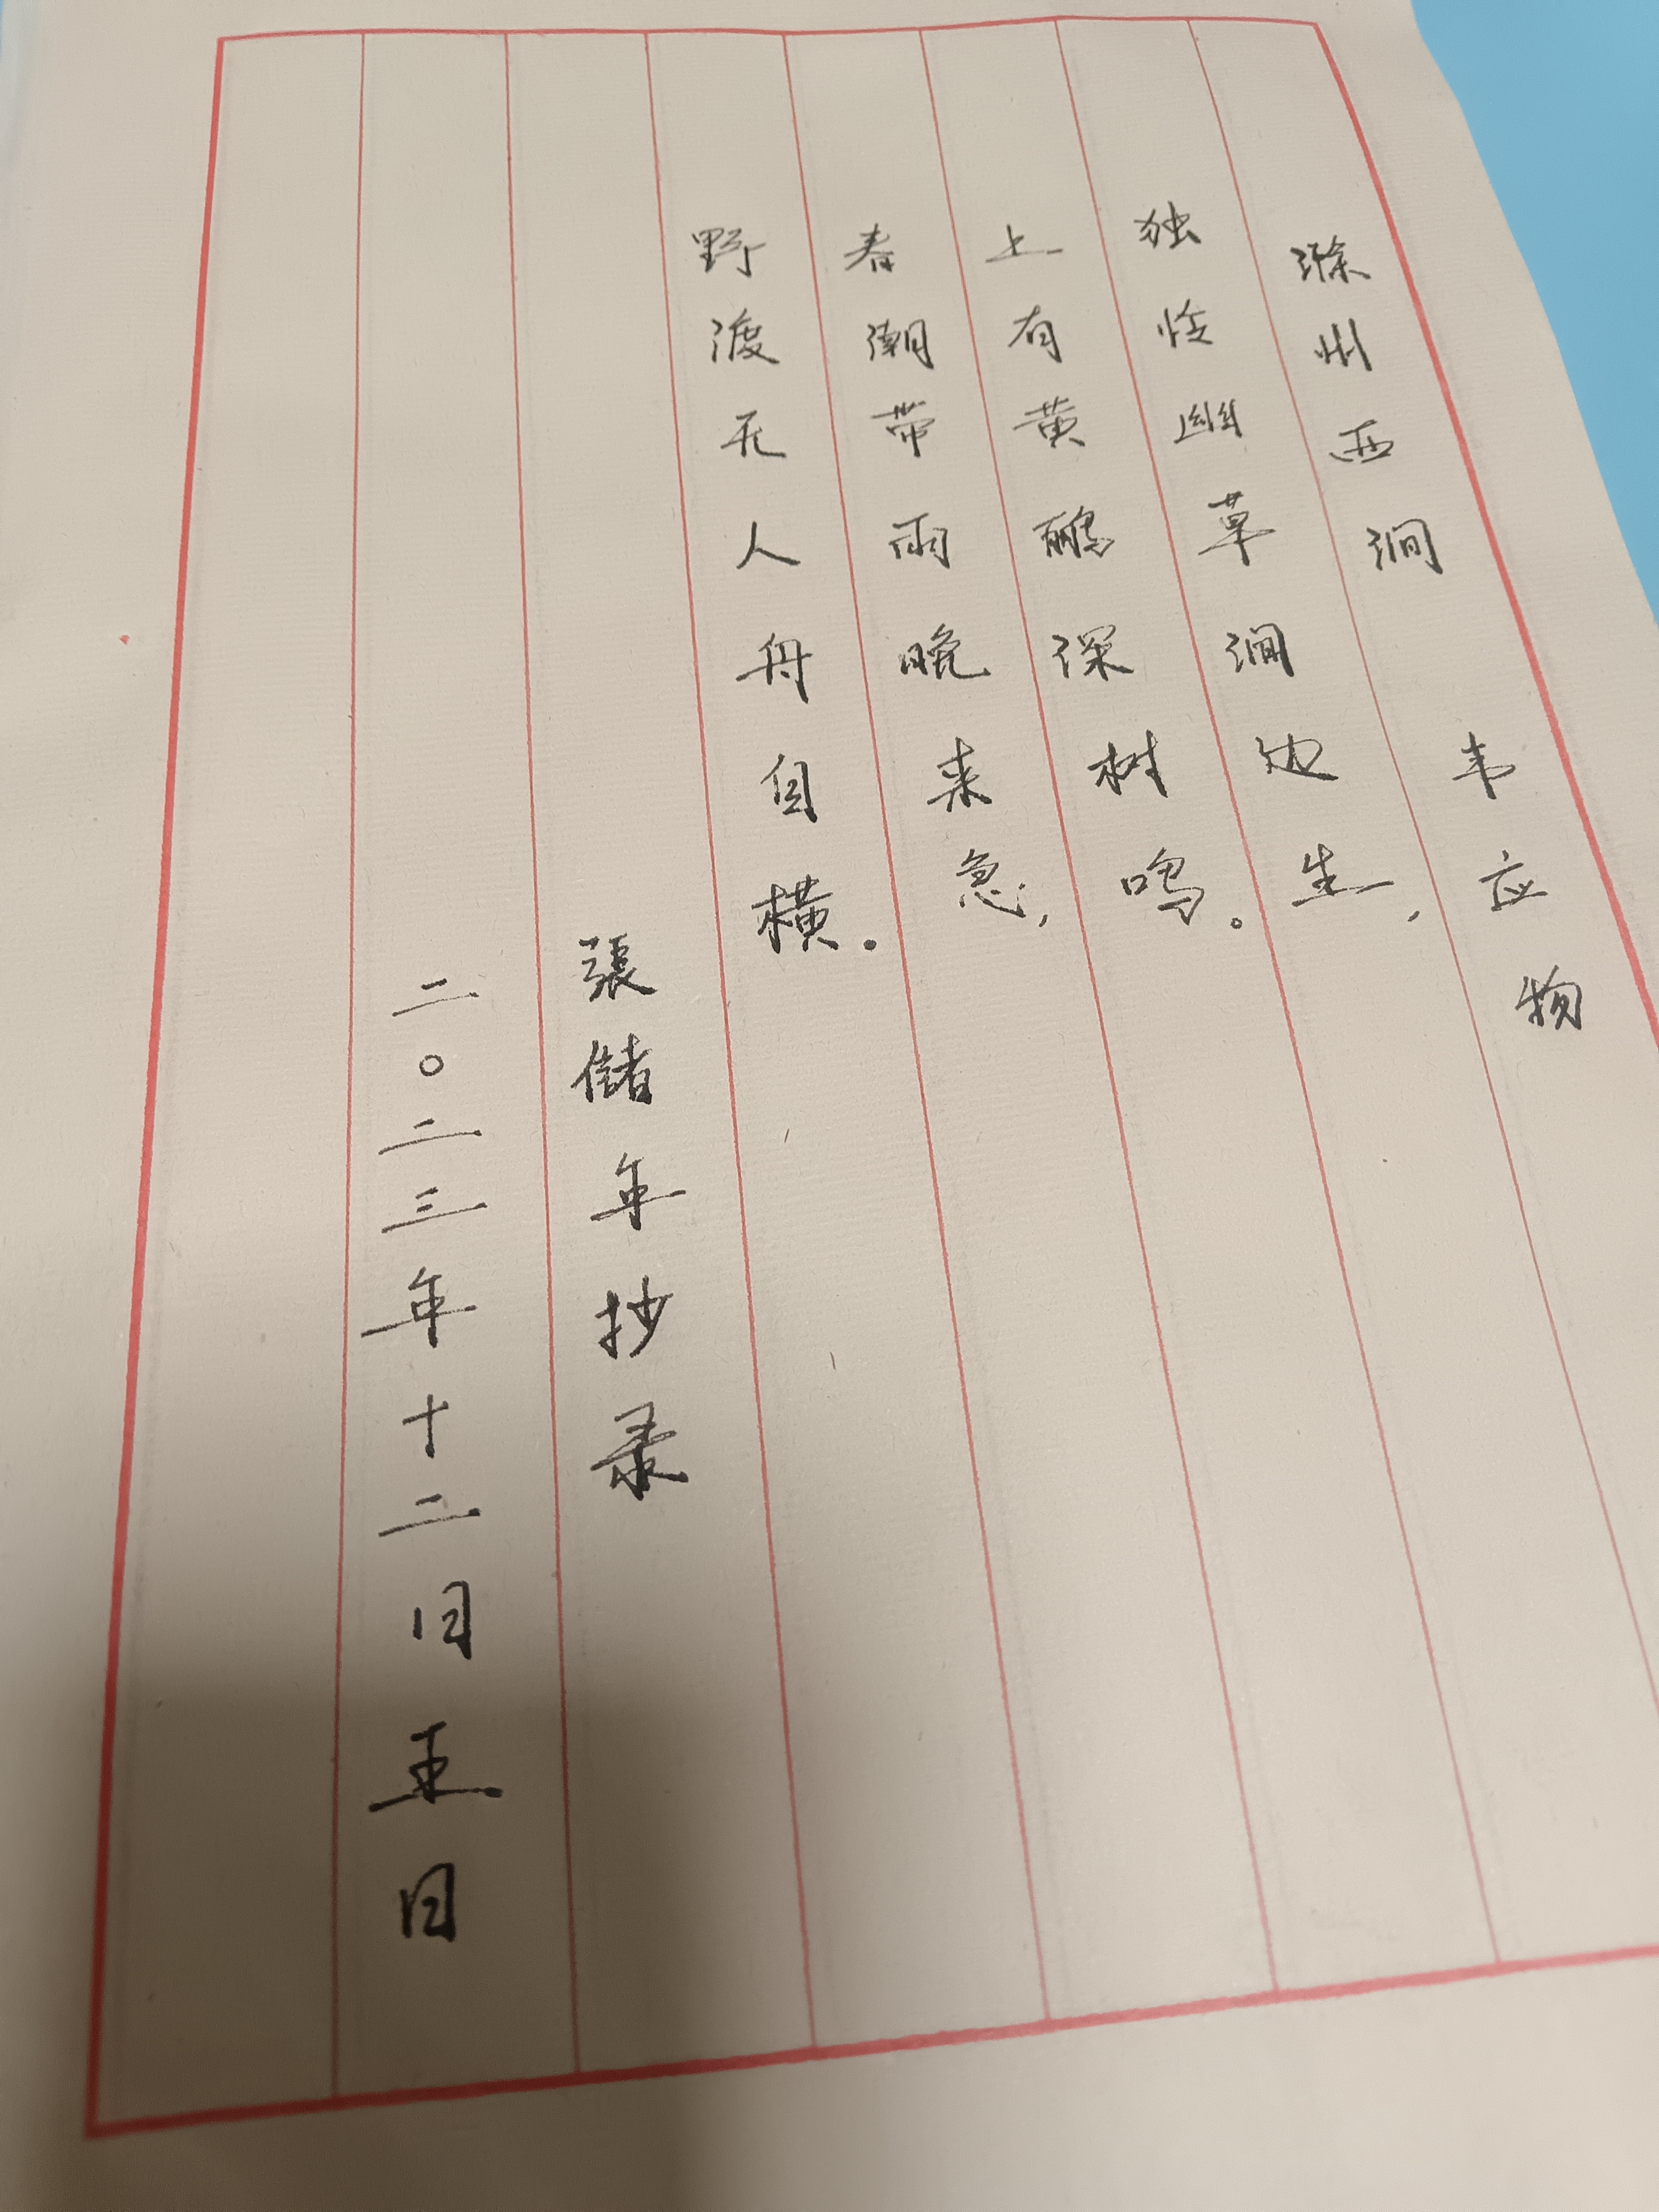 滁州西涧 韦应物
独怜幽草涧边生，
上有黄鹂深树鸣。
春潮带雨晚来急，
野渡无人舟自横。
張储年抄录
二〇二三年十二月五日